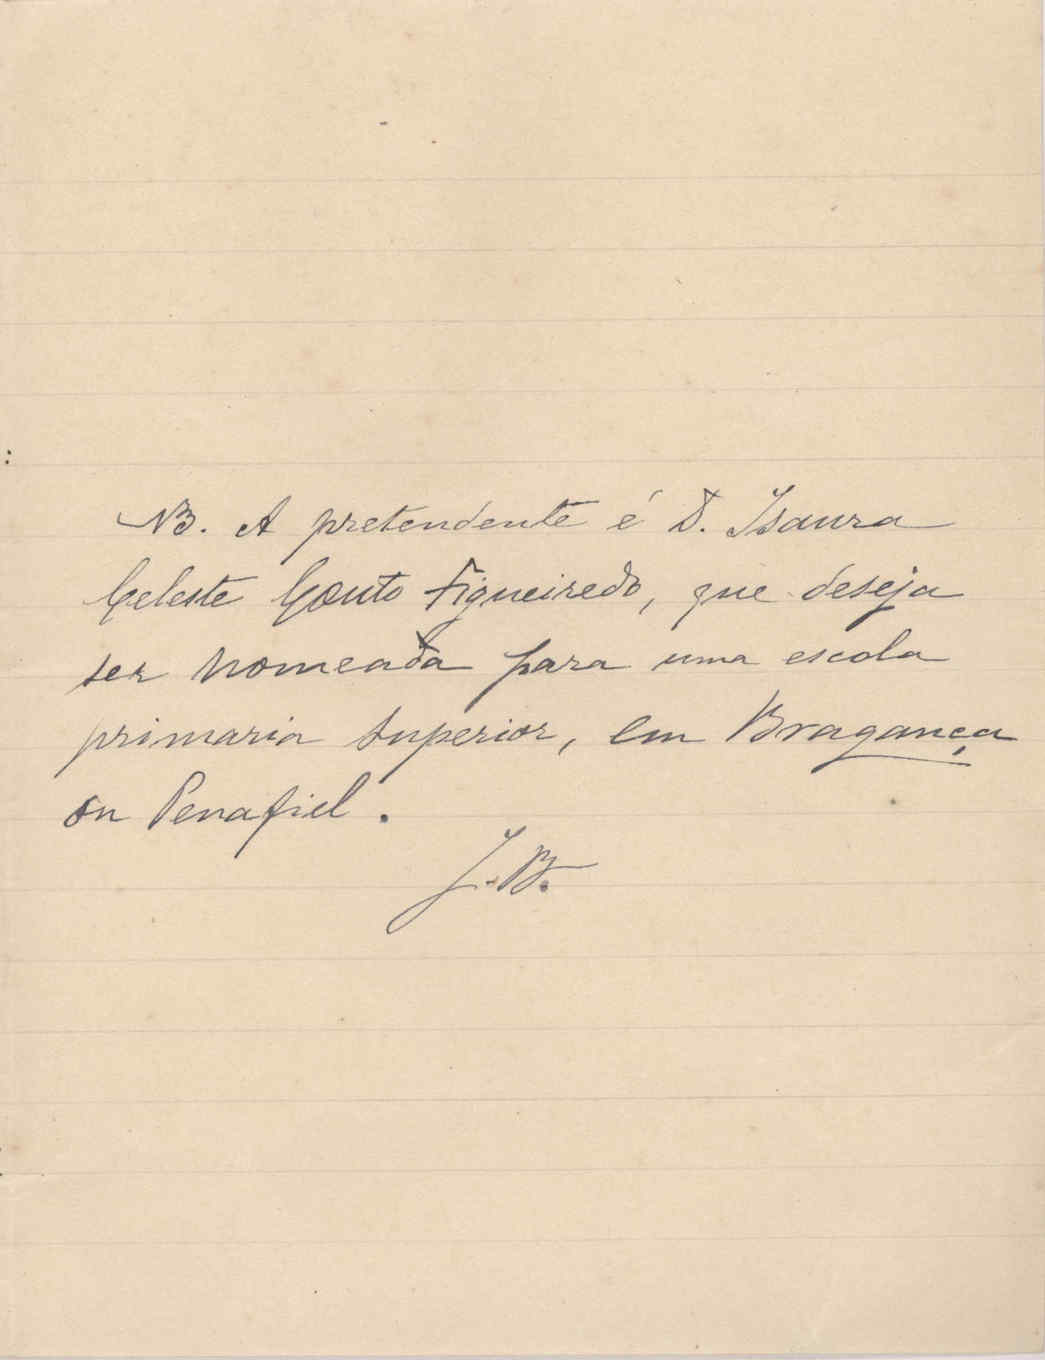 NB. A pretendente é D. Isaura
Celeste Couto Figueiredo, que deseja
ser nomeada para uma escola
primaria superior, em Bragança
ou Penafiel.
J. B.